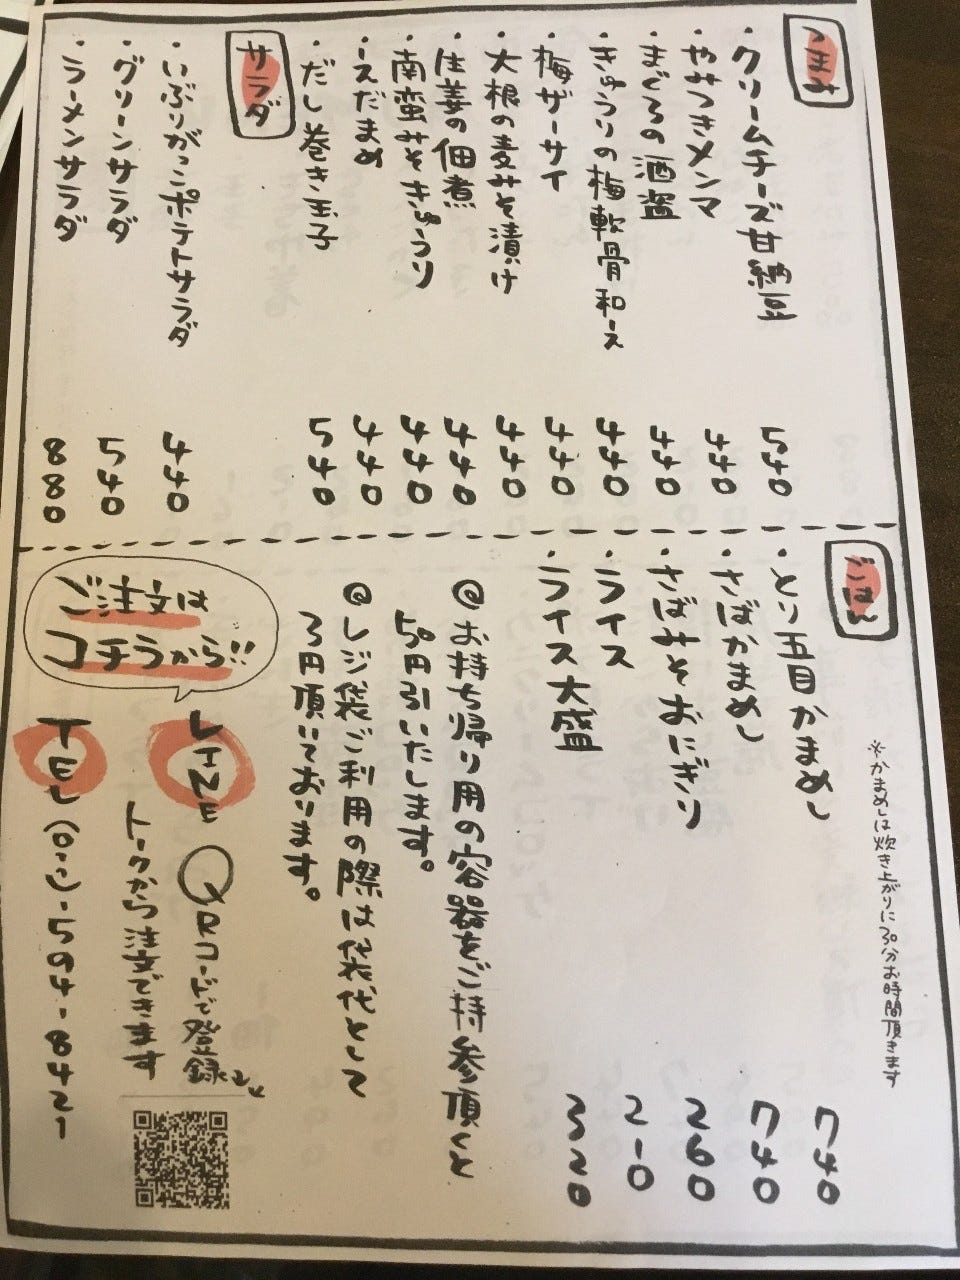 つまみ
・クリームチーズ甘納豆 540
・やみつきメンマ 440
・まぐろの酒盗 440
・きゅうりの梅軟骨和え 440
・梅ザーサイ 440
・大根の麦みそ漬け 440
・生姜の佃煮 440
・南蛮みそきゅうり 440
・えだまめ 440
・だし巻き玉子 540
サラダ
・いぶりがっこポテトサラダ 440
・グリーンサラダ 540
・ラーメンサラダ 880
ごはん
※かまめしは炊き上がりに30分お時間頂きます
・とり五目かまめし 740
・さばかまめし 740
・さばみそおにぎり 260
・ライス 210
・ライス大盛 320
@お持ち帰り用の容器をご持参頂くと
50円引いたします。
@レジ袋ご利用の際は袋代として
3円頂いております。
ご注文は
コチラから!!
LINE QRコードで登録
トークから注文できます
TEL(011)-594-8421